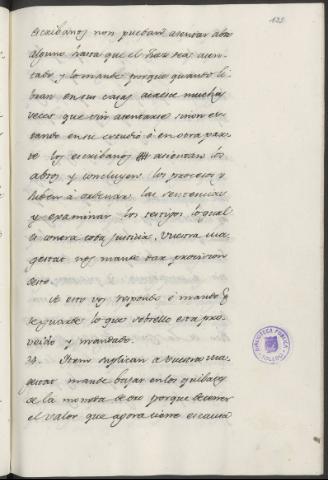 122
escribanos non puedan asentar abto
alguno hasta que el Juez sea asen-
tado, y lo mande porque quando li-
bran en sus casas acaesce muchas
veces que sin asentarse sinon es-
tando en su estudio ó en otra par-
te los escribanos asientan los
abtos y concluyen los procesos y
suben á ordenar las sentencias
y examinar los testigos lo qual
es contra toda justicia, vuestra ma-
gestat nos mande dar provision
desto.
A esto vos respondo é mando q
se guarde lo que sobrello esta pro-
veido y mandado.
24. Item suplican a vuestra ma-
gestat mande bajar en los quilates
de la moneda de oro porque de tener
el valor que agora tiene es causa
BIBLIOTECA PUBLICA
TOLEDO